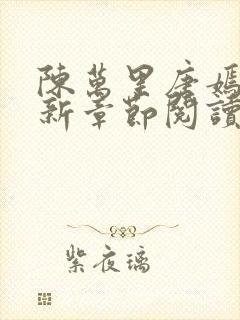 陳萬里唐嫣
新章節閱讀
紫夜璃